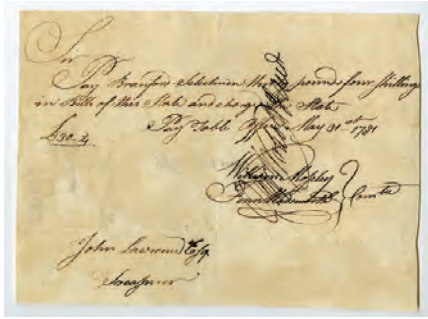 Sir
Pay Branford Selectmen thirty pounds four shillings
in Bills of this State and charge the State
£30.4 Pay Table Office May 31st 1781
William Mosely
Comtee
John Lawrence Esqr
Treasurer